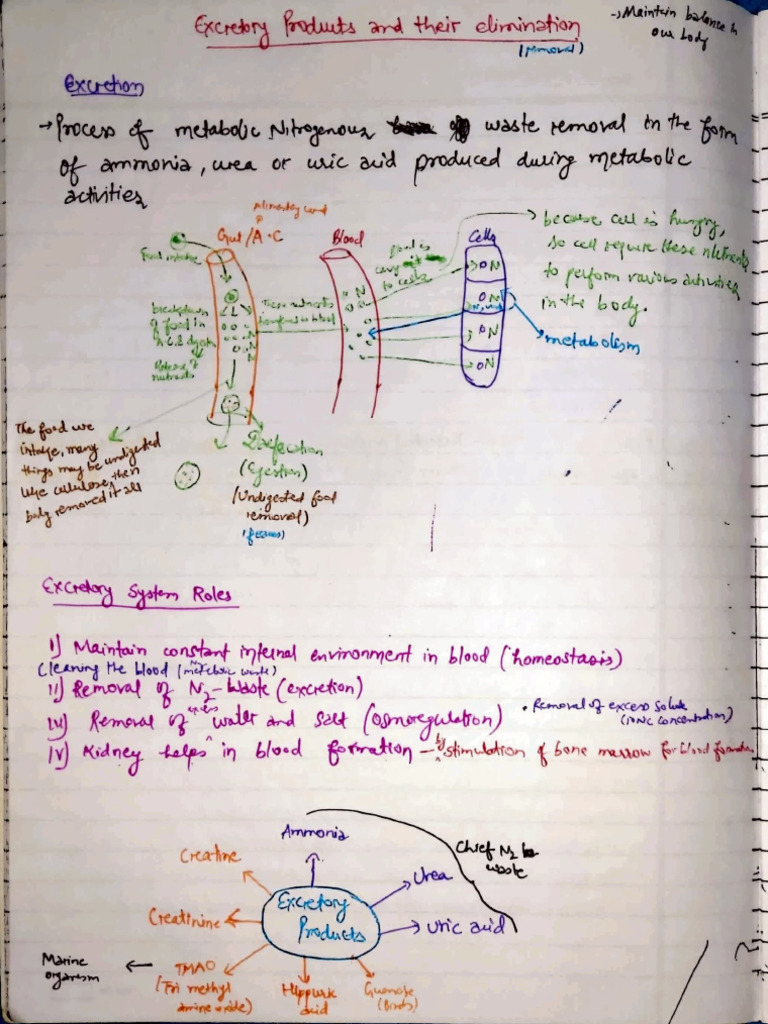 Excretory Products and their elimination
(removal)
→ Maintain balance in
our body
Excretion
→ Process of metabolic Nitrogenous waste removal in the form
of ammonia, urea or uric acid produced during metabolic
activities
Food intake
Gut/A.C
Blood
Cells
because cell is hungry,
so cell require these nutrients
to perform various activities
in the body.
breakdown
of food in
Release of
nutrients
These nutrients
in blood
to cells
N
N
N
ON
ON
ON
ON
metabolism
The food we
intake, many
things may be undigested
like cellulose, then
body removed it as
(Egestion)
(Undigested food
removal)
Excretory System Roles
I) Maintain constant internal environment in blood (homeostasis)
Cleaning the blood (metabolic waste)
II) Removal of N2-Waste (excretion)
III) Removal of excess water and salt (osmoregulation)
• Removal of excess solute
(ionic concentration)
IV) Kidney helps in blood formation – by stimulation of bone marrow for blood formation
Ammonia
Chief N2
waste
Creatine
Urea
Excretory
Products
Creatinine
Uric acid
Marine
organism
TMAO
(Tri methyl
amine oxide)
Hippuric
acid
(Birds)